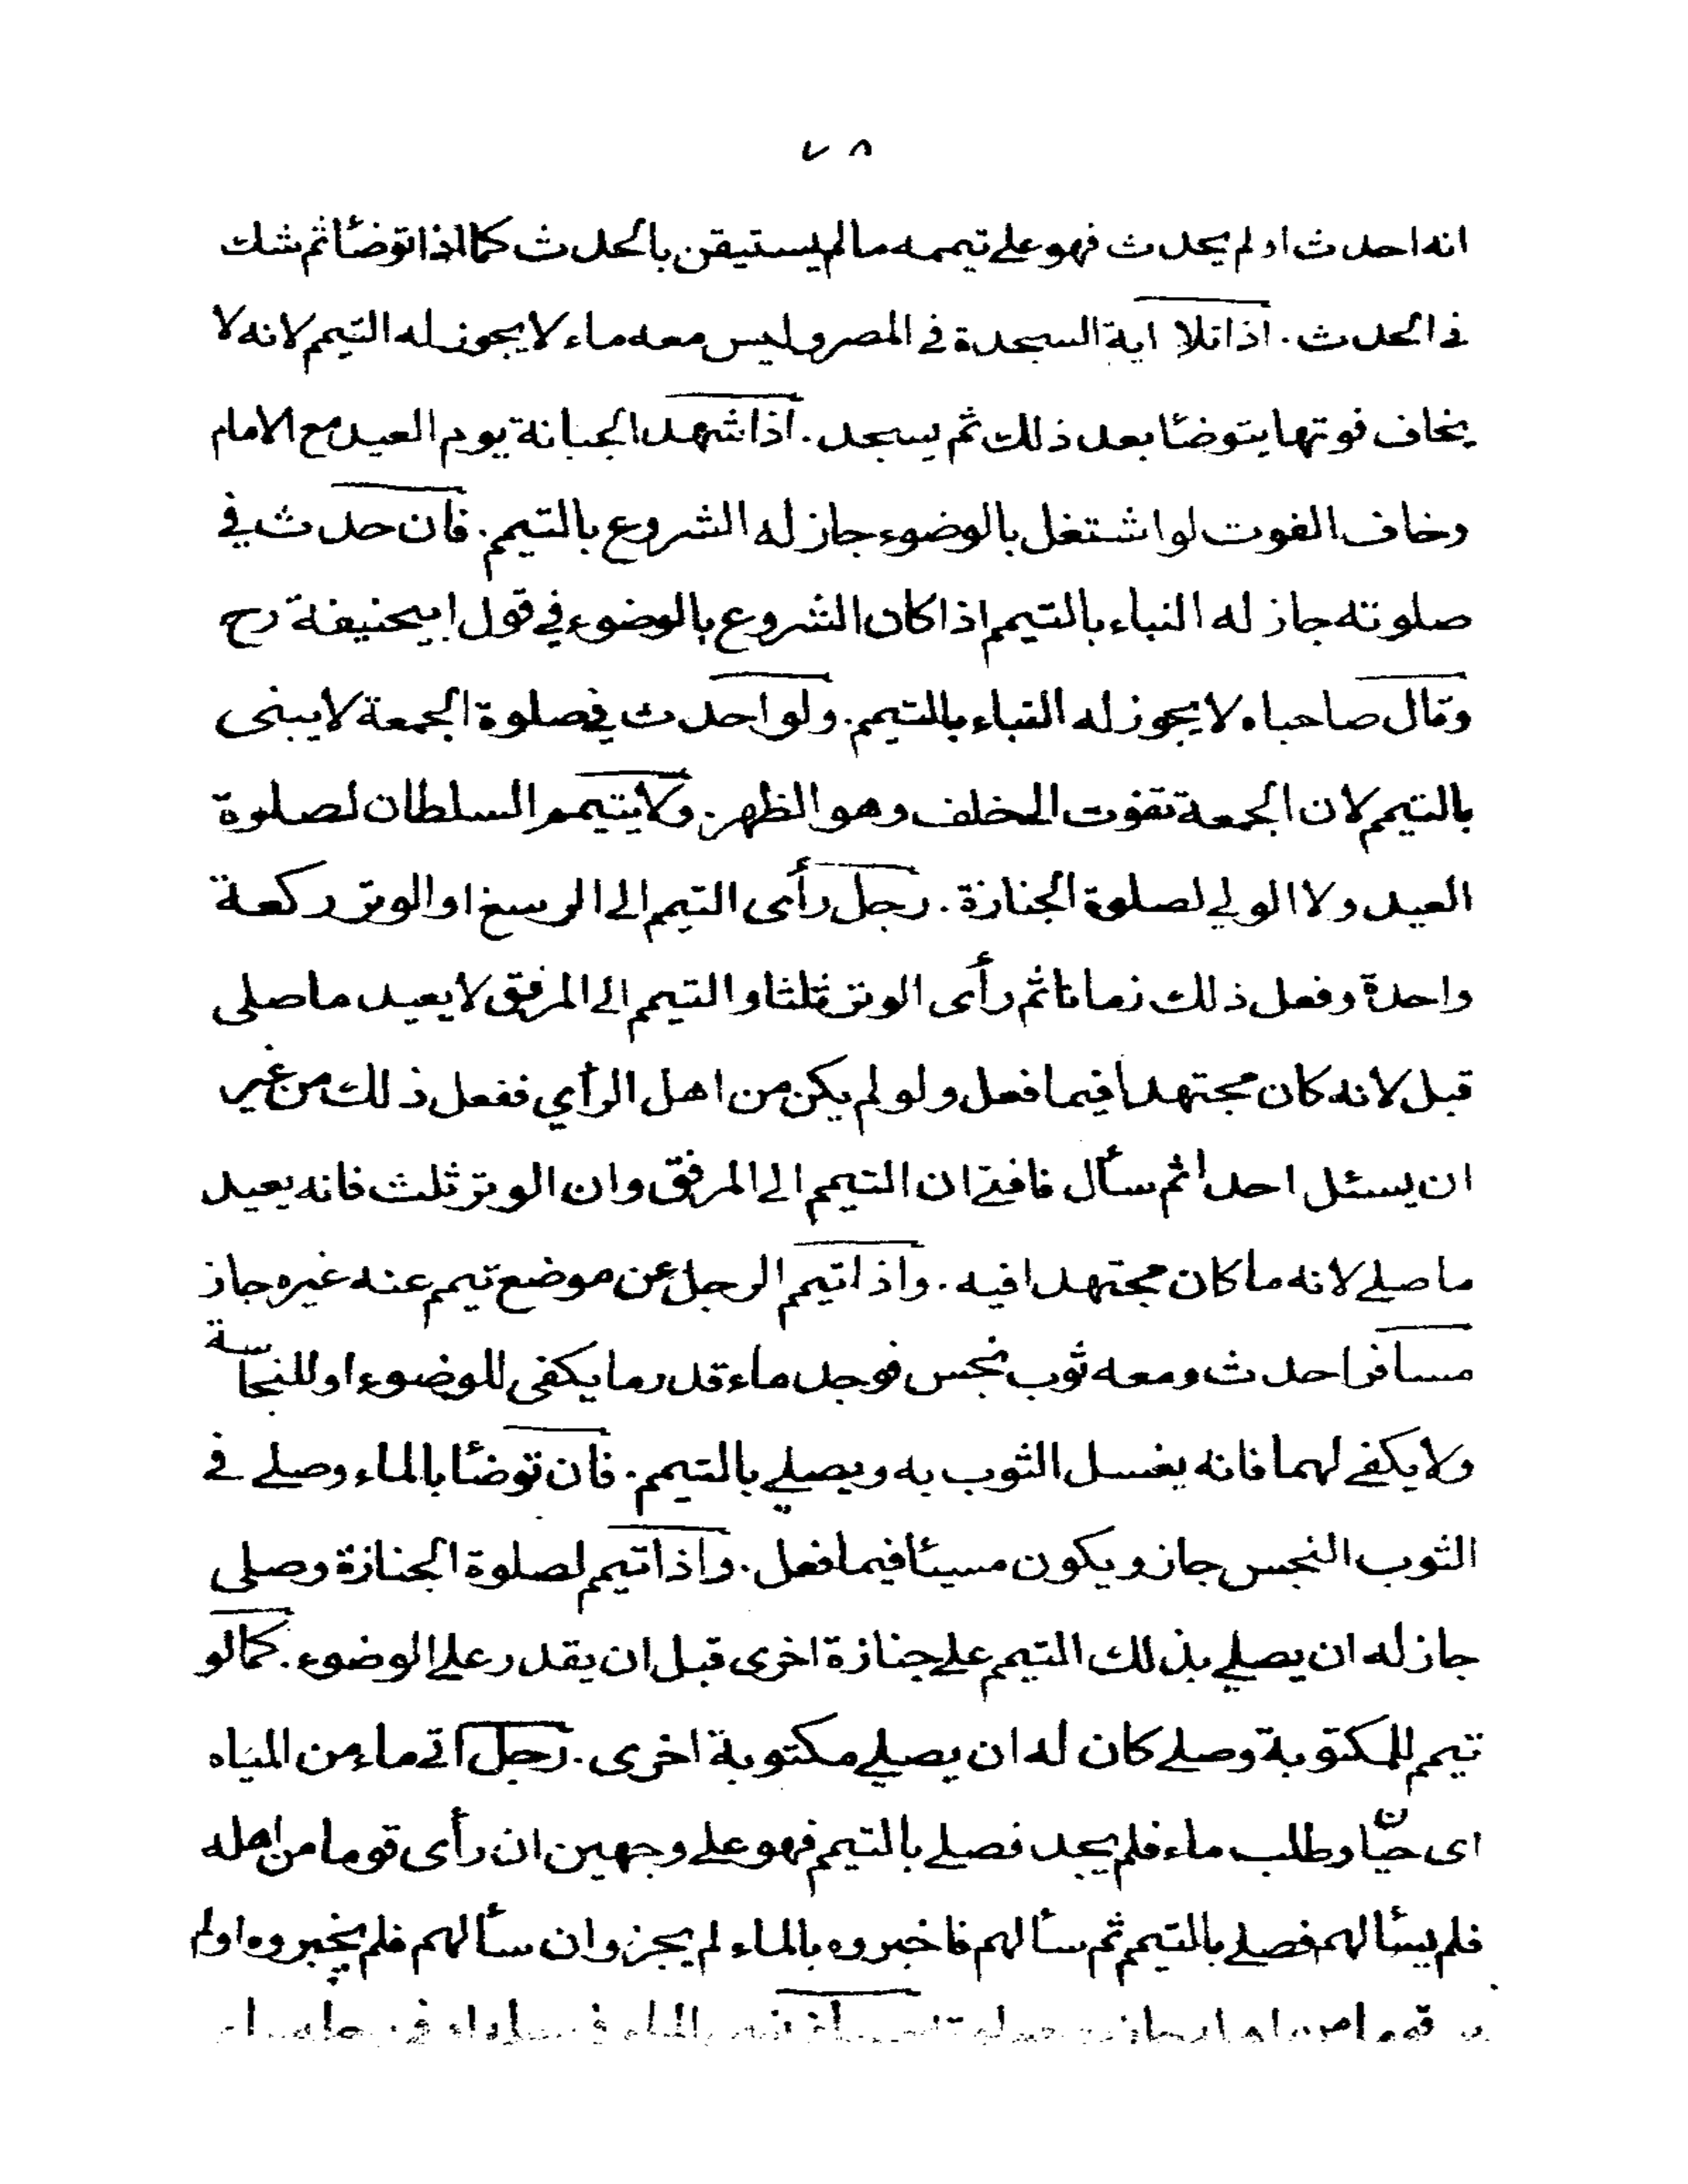 ٧٨
انه احدث او لم يحدث فهو على تيممه ما لم يستيقن بالحدث كما اذا توضأ ثم شك
فى الحدث . اذا تلا اية السجدة فى المصر وليس معه ماء لا يجوز له التيمم لانه لا
يخاف فوتها يتوضأ بعد ذلك ثم يسجد . اذا شهد الجبانة يوم العيد مع الامام
وخاف الفوت لو اشتغل بالوضوء جاز له الشروع بالتيمم . فان حدث في
صلوته جاز له النباء بالتيمم اذا كان الشروع بالوضوء في قول ابيحنيفة رح
وقال صاحباه لا يجوز له النباء بالتيمم . ولو احدث في صلوة الجمعة لا يبنى
بالتيمم لان الجمعة تفوت الى خلف وهو الظهر . ولا يتيمم السلطان لصلوة
العيد ولا الولي لصلوة الجنازة . رجل رأى التيمم الى الرسغ او الوتر ركعة
واحدة وفعل ذلك زمانا ثم رأى الوتر ثلثا والتيمم الى المرفق لا يعيد ما صلى
قبل لانه كان مجتهدا فيما فعل ولو لم يكن من اهل الرأي ففعل ذلك من غير
ان يسئل احدا ثم سأل فافتى ان التيمم الى المرفق وان الوتر ثلث فانه يعيد
ما صلى لانه ما كان مجتهدا فيه . واذا تيمم الرجل عن موضع تيمم عنه غيره جاز
مسافر احدث ومعه ثوب نجس فوجد ماء قدر ما يكفى للوضوء او للنجاسة
ولا يكفى لهما فانه يغسل الثوب به ويصلي بالتيمم . فان توضأ بالماء وصلى فى
الثوب النجس جاز ويكون مسيئا فيما فعل . واذا تيمم لصلوة الجنازة وصلى
جاز له ان يصلي بذلك التيمم على جنازة اخرى قبل ان يقدر على الوضوء . كما لو
تيمم للمكتوبة وصلى كان له ان يصلي مكتوبة اخرى . رجل اتى ماء من المياه
اى حيّا وطلب ماء فلم يجد فصلى بالتيمم فهو على وجهين ان رأى قوما من اهله
فلم يسألهم فصلى بالتيمم ثم سألهم فاخبروه بالماء لم يجز وان سألهم فلم يخبروه او لم
قوما من